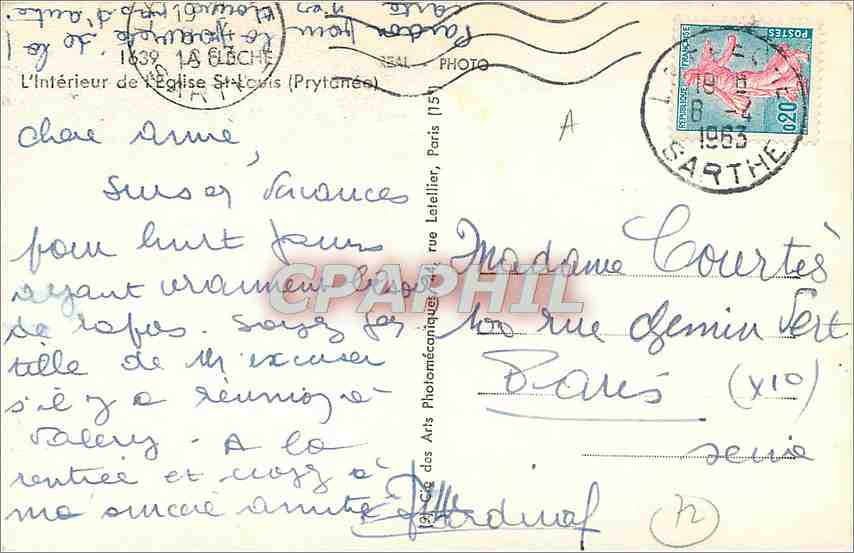 Pardon pour la
carte n'en
1639 LA FLÈCHE
REAL - PHOTO
L'Intérieur de l'Eglise St-Louis (Prytanée)
RÉPUBLIQUE FRANÇAISE
POSTES
0,20
19 H
8 - 4
1963
SARTHE
A
Chère amie,
Suis en vacances
pour huit jours
ayant vraiment besoin
de repos. Soyez gen
tille de m'excuser
s'il y a réunion à
Valery. A la
rentrée et croyez à
ma sincère amitié
Madame Courtès
100 rue Chemin Vert
Paris (XI°)
Seine
Cie des Arts Photomécaniques, 44, rue Letellier, Paris (15°)
CPAPHIL
72